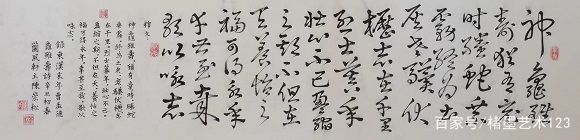 神龜雖
壽猶有竟
時螣蛇乘
霧終為土
灰老驥伏
櫪志在千里
烈士暮年
壯心不已盈縮
之期不但在
天養怡之
福可得永年
幸甚至哉
歌以詠志
釋文:
神龜雖壽猶有竟時螣蛇
乘霧終為土灰老驥伏櫪志
在千里烈士暮年壯心不已
盈縮之期不但在天養怡之
福可得永年幸甚至哉歌以
詠志
錄東漢末年曹孟德
龜雖壽詩辛丑初春
蘭風軒主陳崇松
百家号/楮墨艺术123